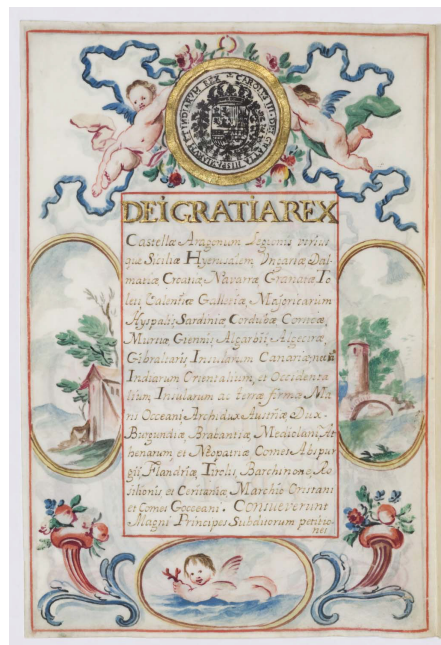 CAROLVS III DEI GRATIA
HISPANIARVM ET INDIARVM REX
DEI GRATIA REX
Castellæ Aragonum Legionis vtrius
que Siciliæ Hyerusalem Vngariæ Dal
matiæ Croatiæ Navarræ Granatæ To
leti Valentiæ Galleciæ, Majoricarum
Hyspalis, Sardiniæ Cordubæ Corsicæ,
Murtiæ Giennis, Algarbii, Algeciræ,
Gibraltaris Insularum Canariæ nec
Indiarum Orientalium, et Occidenta
lium, Insularum ac terræ firmæ Ma
ris Occeani Archidux Austriæ Dux
Burgundiæ, Brabantiæ, Mediolani, At
henarum et Neopatriæ Comes Abspur
gii, Flandriæ, Tirolis, Barchinonæ, Ro
silionis et Ceritaniæ, Marchio Oristani
et Comes Goceani. Consueverunt
Magni Principes Subditorum petitio
nes